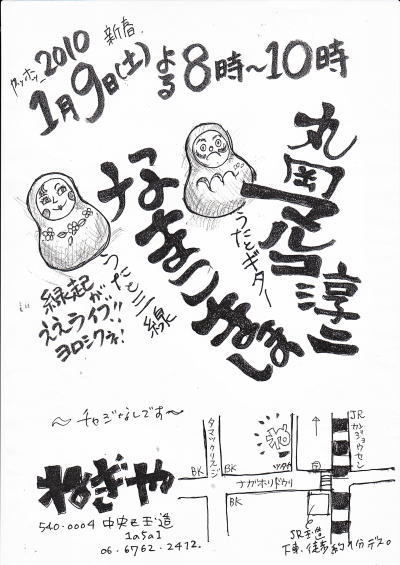 2010 新春
1月9日(土)よる8時～10時
丸岡マルコ淳二
うたとギター
なまこまほ
うたと三線
縁起が
ええライブ!!
ヨロシクネ!
～チャージなしです～
ねぎや
540-0004 中央区玉造
1a5a1
06-6762-2472.
タマツクリスジ
BK
BK
BK
ナガホリドウリ
JR
カンジョウセン
JR玉造
下車・徒歩約1分デス。